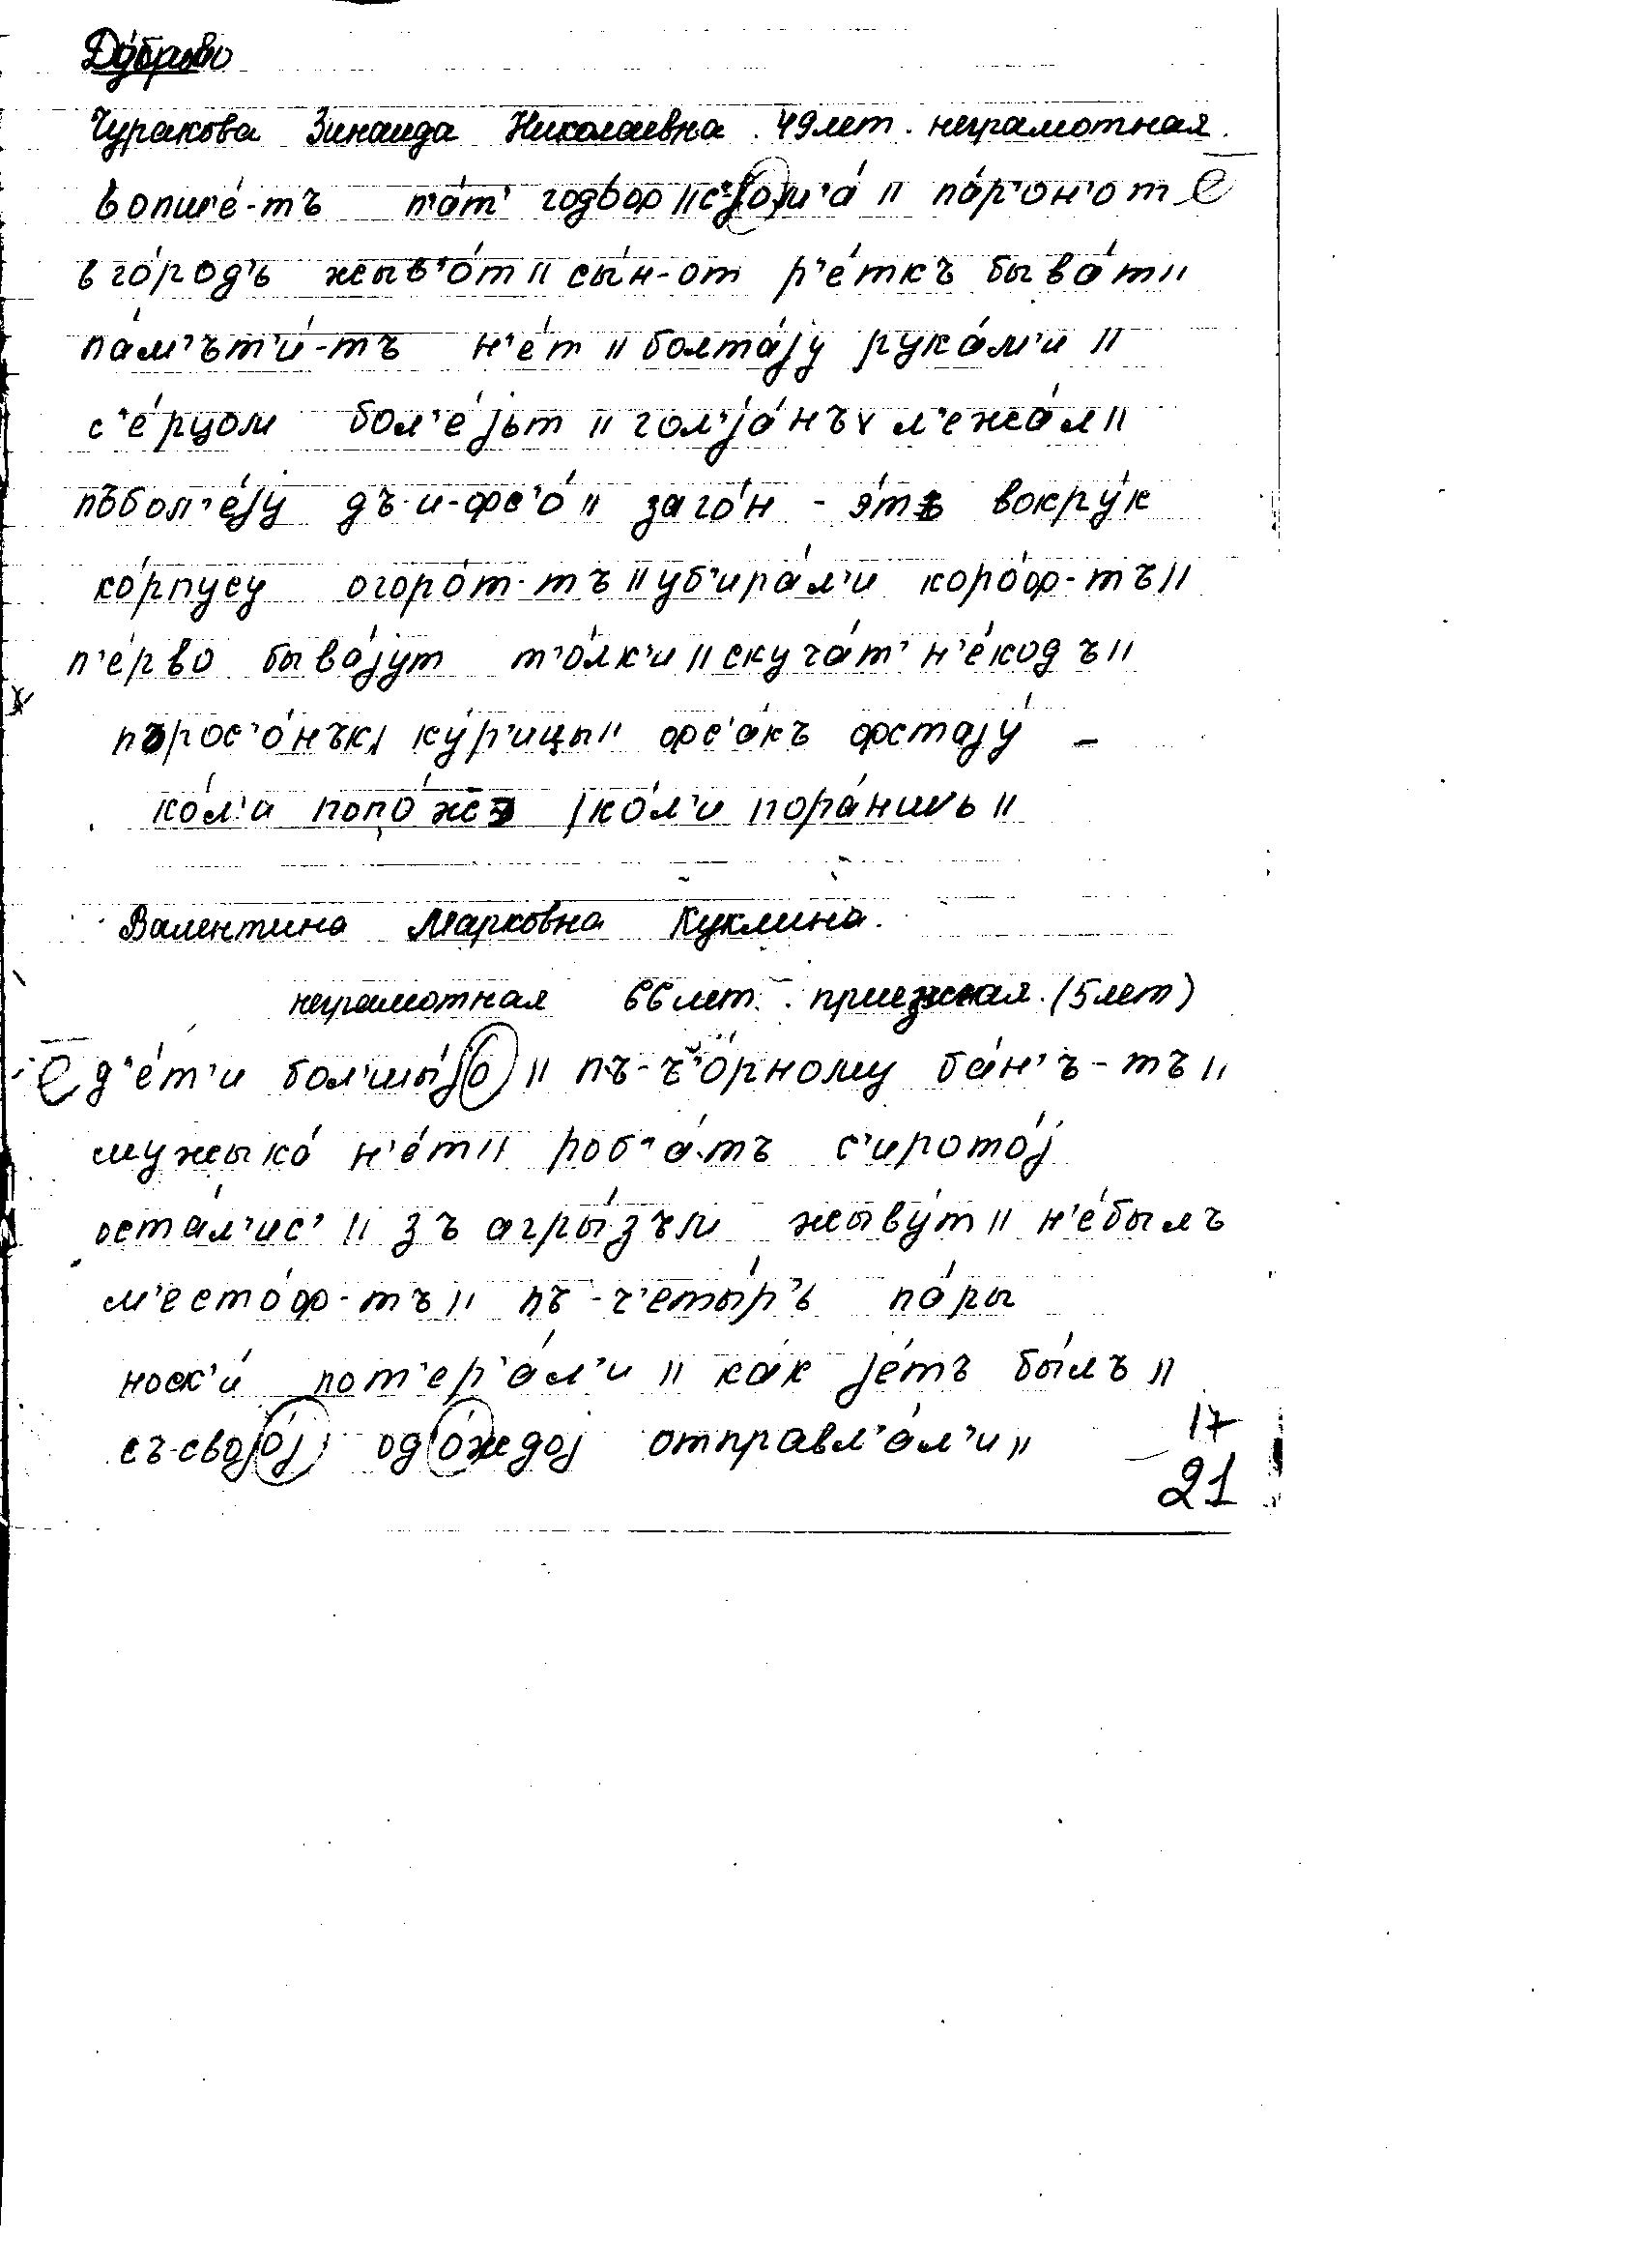 До́брово
Чуракова Зинаида Николаевна. 49 лет. неграмотная.
вопше́-тъ п'а́т' годо́ф || с'јом'а́ || па́р'он'от е
в го́род'ь жыв'о́т || сы́н-от р'е́ткъ быва́т ||
па́м'ът'и́-тъ н'е́т || болта́јy рука́м'и ||
с'е́рцом бол'е́јьт || гол'ја́нъх л'ежа́л ||
пъбол'е́јy дъ-и-фс'о́ || заго́н - э́тъ вокру́к
ко́рпусу огоро́т-тъ || уб'ира́л'и коро́ф-тъ ||
п'е́рво быва́јут т'о́лк'и || скуча́т' н'е́кодъ ||
пърос'о́нък, ку́р'ицы || фс'а́къ фстајý -
ко́л'и попо́же, ко́л'и пора́ншь ||
Валентина Марковна Куклина.
неграмотная 66 лет. приезжая. (5 лет)
е д'е́т'и бол'шы́јо || пъ-ч'о́рному ба́н'ъ-тъ ||
мужыка́ н'е́т || роб'а́тъ с'ирото́ј
оста́л'ис' || зъ агры́зъм жыву́т || н'е́былъ
м'есто́ф-тъ || пъ-ч'еты́р'ь па́ры
носк'и́ пот'ер'а́л'и || ка́к је́тъ бы́лъ ||
съ-својо́ј одо́ждој отправл'а́л'и ||
17
21